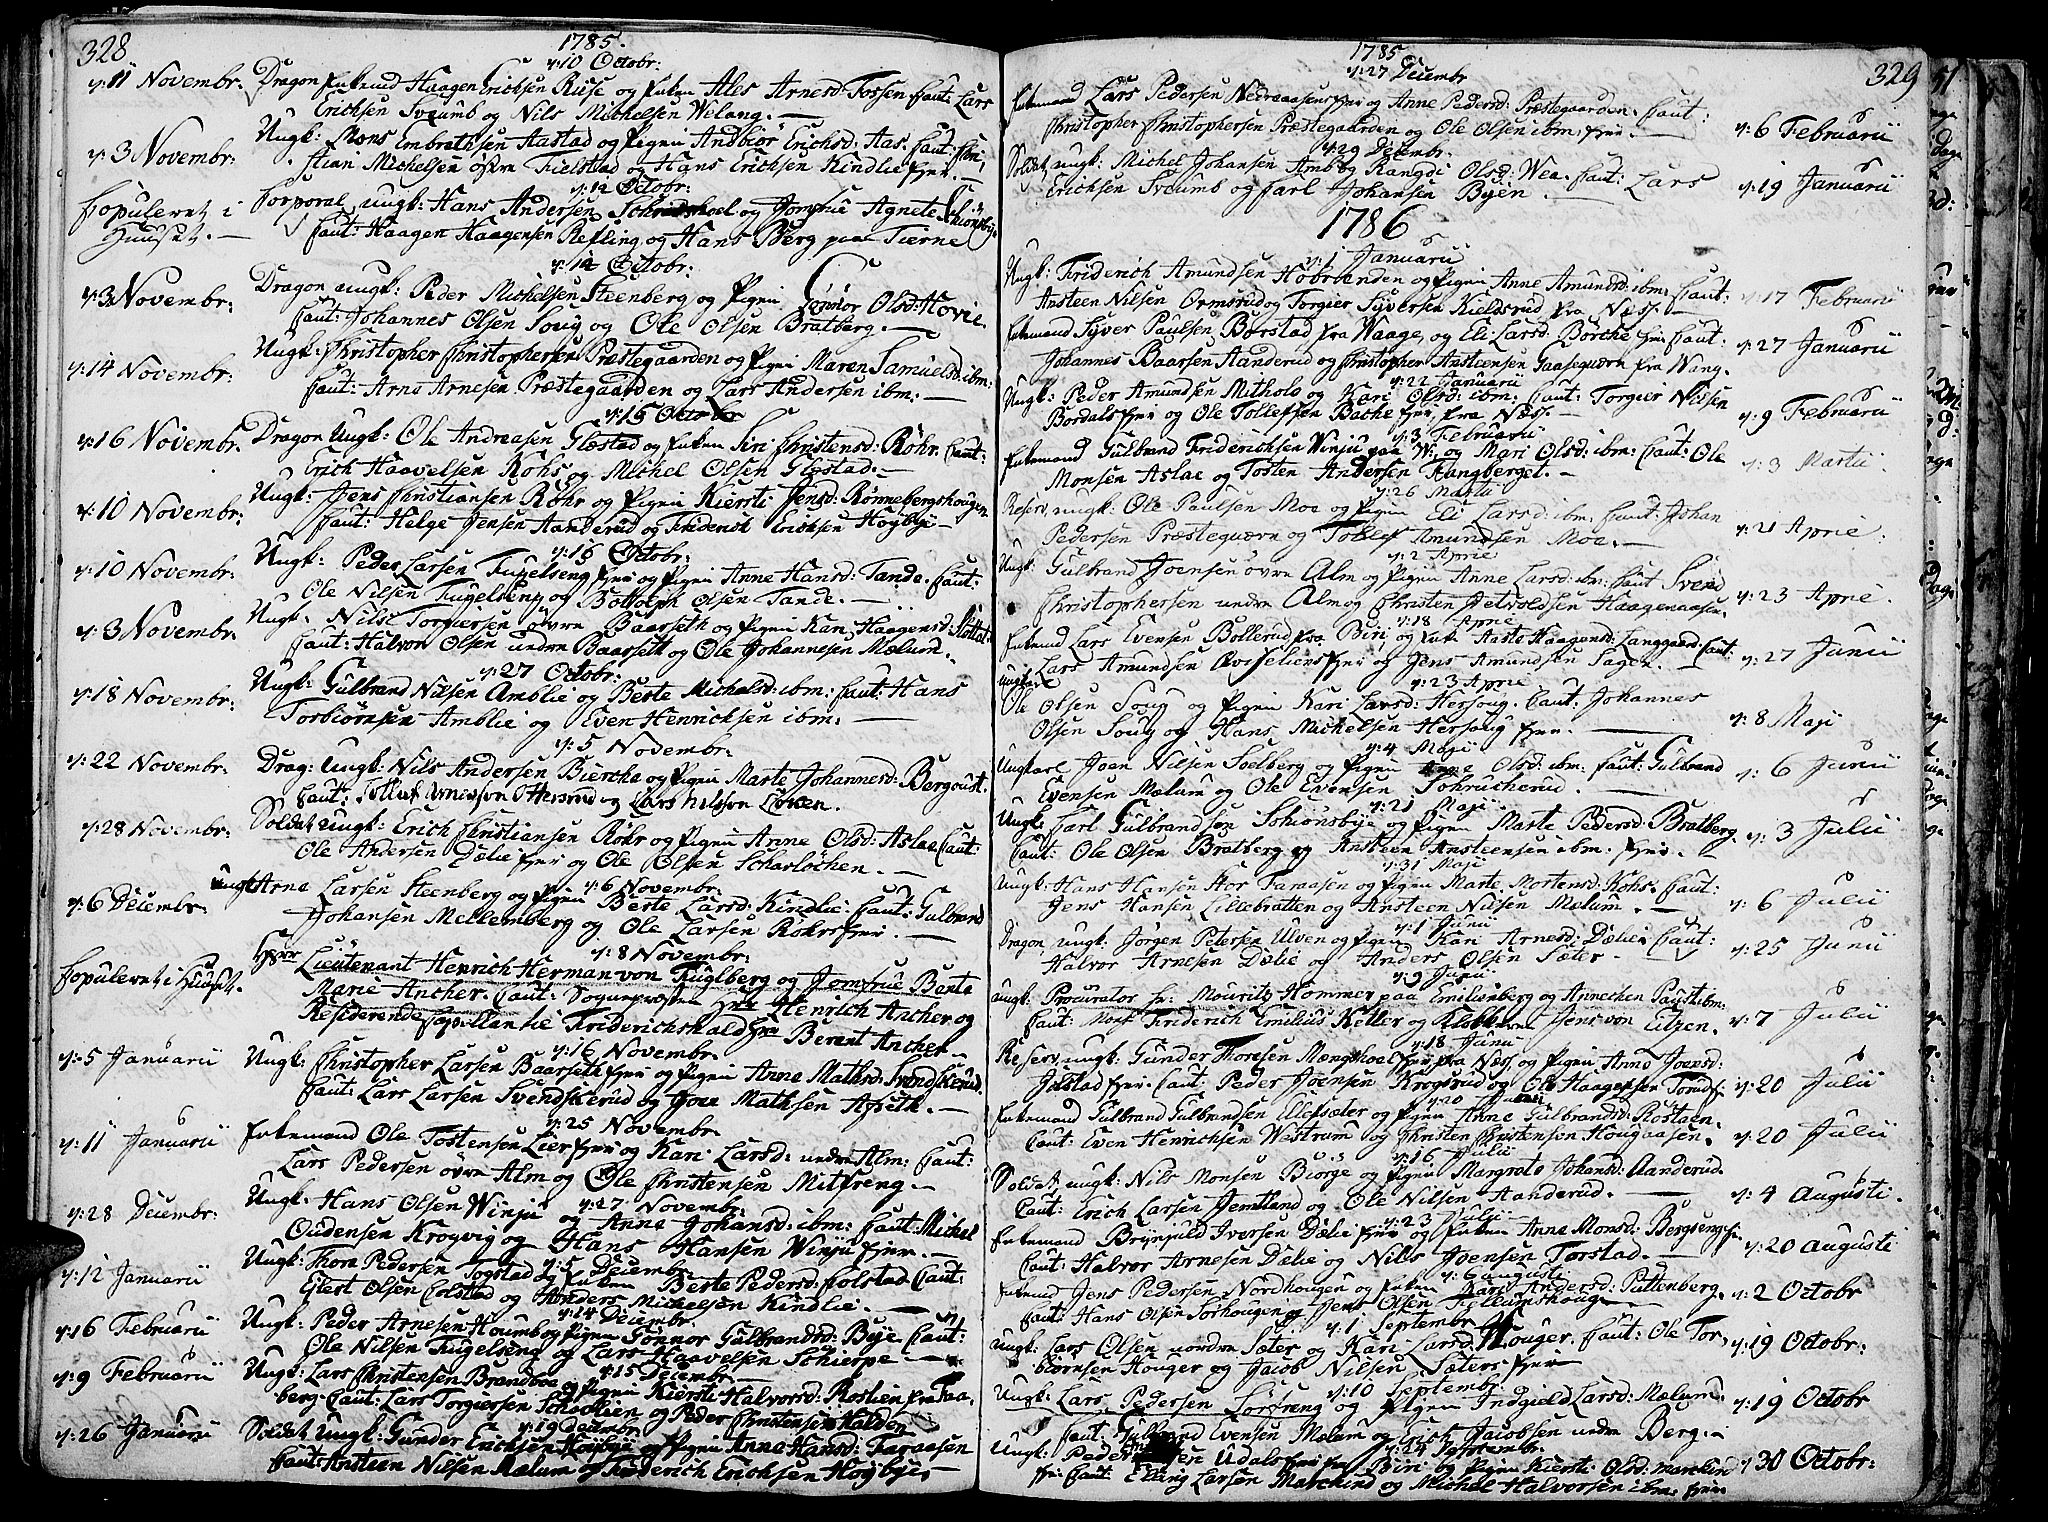 328
1785.
d: 10 Octobr:
d: 11 Novembr. Dragon Enkemd Haagen Erichsen Ruse og Enken Ales Arnesd: Fossen Caut: Lars
Erichsen Sveumb og Nils Michelsen Welang. —
d: 3 Novembr: Ungk: Mons Embrethsen Aastad og Pigen Andbiør Erichsd: Aas. Caut: Chri,
stian Michelsen øfre Fielstad og Hans Erichsen Kindlie —
d: 12 Octobr:
Copuleret i Corporal, ungk: Hans Andersen og Jomfrue Agnete Schiønsbye
Huuset. — Caut: Haagen Haagensen Refling og Hans Berg paa Tierne
d: 14 Octobr:
d: 3 Novembr: Dragon ungk: Peder Michelsen Steenberg og Pigen Gønnor Olsd: Hovie
Caut: Johannes Olsen Soug og Ole Olsen Bratberg. —
d: 14 Novembr: Ungk: Christopher Christophersen Præstegaarden og Pigen Maren Samuelsd: ibm:
Caut: Arne Arnesen Præstegaarden og Lars Andersen ibm: —
d: 15 Octobr
d: 16 Novembr. Dragon Ungk: Ole Andreasen Gløstad og Enken Siri Christensd: Røhr. Caut:
Erich Haavelsen Kohs og Michel Olsen Gløstad. —
d: 10 Novembr: Ungk: Jens Christiansen Røhr og Pigen Kiersti Jensd: Rønnebergshougen
Caut: Helge Jensen Aanderud og Friderich Erichsen Høybye —
d: 16 Octobr:
d: 10 Novembr: Ungk: Peder Larsen Fugelseng og Pigen Anne Hansd: Tande. Caut:
Ole Nilsen Fugelseng og Bottolph Olsen Tande. —
d: 3 Novembr. Ungk. Nils Torgiersen øvre Baarseth og Pigen Kari Haagensd:
Caut: Halvor Olsen undre Baarsett og Ole Johannesen Mælum.
d: 27 Octobr:
d: 18 Novembr: Ungk: Gulbrand Nilsen Amblie og Berte Michelsd: ibm: Caut: Hans
Torbiørnsen Amblie og Even Henrichsen ibm: —
d: 5 Novembr:
d: 22 Novembr: Drag: Ungk: Nils Andersen Biercke og Pigen Marte Johannesd: Bergsust.
Caut: og Lars Nilsen Løken.
d: 28 Novembr: Soldat ungk: Erich Christiansen Røhr og Pigen Anne Olsd: Aslac Caut:
Ole Andersen Dælie og Ole Olsen Scharløchen. —
d: 6 Novembr:
d: 6 Decembr. ungk Arne Larsen Steenberg og Pigen Berte Larsd: Kindlie. Caut: Gulbrand
Johansen Mellemberg og Ole Larsen Rohrs —
d: 8 Novembr:
Copuleret i Huuset. Herr Lieutenant Henrich Herman von Kuglberg og Jomfrue Bente
Marie Ancher. Caut: Sognepræsten Hr: Henrich Ancher og
Residerende Capellan til Friderichshald Hr: Berent Ancher
d: 16 Novembr.
d: 5 Januarii Ungk: Christopher Larsen Baarseth og Pigen Anne Mathsd: Svendskerud
Caut: Lars Larsen Svendskerud og Joen Mathsen Afseth. —
d: 25 Novembr
d: 11 Januarii Enkemand Ole Tostensen Lier og Kari Larsd: undre Alm: Caut:
Lars Pedersen øvre Alm og Ole Christensen Mitfreng. —
d: 27 Novembr:
d: 28 Decembr: Ungk: Hans Olsen Winju og Anne Johansd: ibm: Caut: Michel
Oudensen Krogvig og Hans Hansen Winju —
d: 5 Decembr
d: 12 Januarii Ungk: Thore Pedersen Togstad og Enken Berte Pedersd: Colstad Caut:
Elert Olsen Colstad og Anders Michelsen Kindlie. —
d: 14 Decembr:
d: 16 Februarii Ungk: Peder Arnesen Houmb og Pigen Gønnor Gulbrandsd: Bye. Caut:
Ole Nilsen Fugelseng og Lars Haavelsen Schierpe —
d: 15 Decembr
d: 9 Februarii Ungk: Lars Christensen Brandboe og Pigen Kiersti Halvorsd: Rostien fra Faa,
berg Caut: Lars Torgiersen Scholien og Peder Christensen Halden
d: 19 Decembr
d: 26 Januarii Soldat Ungk: Gunder Erichsen Høybye og Pigen Anne Hansd: Faraasen
Caut: Ansteen Nilsen Mælum og Friderich Erichsen Høybye. —
329
1785
d: 27 Decembr
Enkemand Lars Pedersen og Anne Pedersd: Præstegaarden. Caut: d: 6 Februarii
Christopher Christophersen Præstegaarden og Ole Olsen ibm:
d: 29 Decembr:
Soldat ungk: Michel Johansen Amb og Rangdi Olsd: Wea. Caut: Lars d: 19 Januarii
Erichsen Sveumb og Carl Johansen Byen. —
1786
d: 1 Januarii
Ungk: Friderich Amundsen Hobranden og Pigen Anne Amundsd: ibm: Caut: d: 17 Februarii
Ansteen Nilsen Ormsrud og Torgier Syversen Kieldsrud fra Næss.
Enkemand Syver Paulsen Borstad fra Waage, og Eli Larsd: Børche Caut: d: 27 Januarii
Johannes Baarsen Aanderud og Christopher Ansteensen Gaasequærn fra Wang.
d: 22 Januarii
Ungk: Peder Amundsen Mitholo og Kari Olsd: ibm: Caut: Torgier Nilsen d: 9 Februarii
Bordals og Ole Tollefsen Bache fra Næss. —
d: 3 Februarii
Enkemand Gulbrand Friderichsen Winju paa W: og Mari Olsd: ibm: Caut: Ole d: 3 Martii
Monsen Aslac og Tosten Andersen Hangberget. —
d: 26 Martii
Reserv, ungk: Ole Paulsen Moe og Pigen Eli Larsd: ibm: Caut: Johan d: 21 Aprie
Pedersen Præstequærn og Tollef Amundsen Moe. —
d: 2 Aprie
Ungk: Gulbrand Joensen øvre Alm og Pigen Anne Larsd: ibm: Caut Svend d: 23 Aprie
Christophersen undre Alm og Christen Haagenaasen.
d: 18 Aprie
Enkemd Lars Evensen Bollerud fra Biri, og Enk Aaste Haagensd: Langgaard Caut: d: 27 Junii
Lars Amundsen og Jens Amundsen Sagen.
d: 23 Aprie
Ungkarl Ole Olsen Soug og Pigen Kari Larsd: Hersoug. Caut: Johannes d: 8 Maji
Olsen Soug og Hans Michelsen Hersoug
d: 4 Maji
Ungkarl Joen Nilsen Soelberg og Pigen Olsd: ibm: Caut: Gulbrand d: 6 Junii
Evensen Mælum og Ole Evensen Schrucherud. —
d: 21 Maji
Ungk: Carl Gulbrandsen Schiønsbye og Pigen Marte Pedersd: Bratberg d: 3 Julii
Caut: Ole Olsen Bratberg og Ansteen Ansteensen ibm:
d: 31 Maji
Ungk: Hans Hansen Stor Faraasen og Pigen Marte Mortensd: Kohs. Caut: d: 6 Julii
Jens Hansen Lillebratten og Ansteen Nilsen Mælum. —
d: 1 Junii
Dragon, ungk: Jørgen Petersen Ulven og Pigen Kari Arnesd: Dælie Caut: d: 25 Junii
Halvor Arnesen Dælie og Anders Olsen Sæter. —
d: 9 Junii
ungk: Procurator Hr: Mouritz Hommer paa Emilienberg og Annechen Paust ibm: d: 7 Julii
Caut: Friderich Emilius Keller og Klokkeren Jens von Eitzen.
d: 18 Junii
Reserv, ungk: Gunder Thoresen Mængshoel fra Næs, og Pigen Anne Joensd: d: 20 Julii
Jølstad Caut: Peder Joensen Krogsrud og Ole Haagensen
d: 20 Junii
Enkemand Gulbrand Gulbrandsen og Pigen Anne Gulbrandsd: Rosteen. d: 20 Julii
Caut: Even Henrichsen Westrum og Christen Christensen Hougaasen.
d: 16 Julii
Soldat, ungk: Nils Monsen Biørge og Pigen Margrete Johansd: Aanderud. d: 4 Augusti.
Caut: Erich Larsen Jemtland og Ole Nilsen Aanderud. —
d: 23 Julii
Enkemand Brynjuld Iversen Dælie og Enken Anne Monsd: Bergseng d: 20 Augusti
Caut: Halvor Arnesen Dælie og Nils Joensen Torstad. —
d: 6 Augusti
Enkemd Jens Pedersen Nordhougen og Enken Kari Andersd: Puttenberg. d: 2 Octobr
Caut: Hans Olsen Sørhougen og Jens Olsen
d: 1 Septembr
Ungk: Lars Olsen nordre Sæter og Kari Larsd: Houger. Caut: Ole Tor, d: 19 Octobr:
biørnsen Houger og Jacob Nilsen Sæters
d: 10 Septembr:
Ungk: Lars Pedersen Sørfreng og Pigen Indgield Larsd: Mælum. d: 19 Octobr
Caut: Gulbrand Evensen Mælum og Erich Jacobsen undre Berg. —
d: 24 Septembr.
Ungk: Peder Udals fra Biri og Pigen Kiersti Olsd: Marckind d: 30 Octobr:
Caut: Elling Larsen Marckind og Michel Halvorsen ibm: